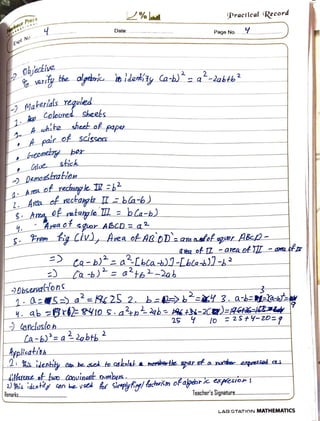 Practical Record
Expt. No 4 Date Page No 4
→ Objective
To verify the algebraic identity (a-b)² = a²-2ab+b²
→ Materials required
1. Coloured sheets
2. A white sheet of paper
• A pair of scissors
• Geometry box
• Glue stick
→ Demonstration
1. Area of rectangle IV = b²
2. Area of rectangle II = b(a-b)
3. Area of rectangle III = b(a-b)
4. Area of squar ABCD = a²
5. From fig (iv), Area of AB'OD' = area of squar ABCD -
area of II - area of III - area of
=> (a-b)² = a²-[b(a-b)]-[b(a-b)]-b²
=> (a-b)² = a²+b²-2ab
→ Observations
1. a = 5 => a² = 25 2. b = => b² = 4 3. a-b =
4. ab = 10 5. a²+b²-2ab =
25 4 10 = 25+4-20 = 9
→ Conclusion
(a-b)² = a²-2ab+b²
Application
1. This identity can be used to calculat a number expressed as
difference of two convinent numbers.
2) This identity can be used for simplifying/factorism of algebric expression
Remarks Teacher's Signature
LAB STATION MATHEMATICS